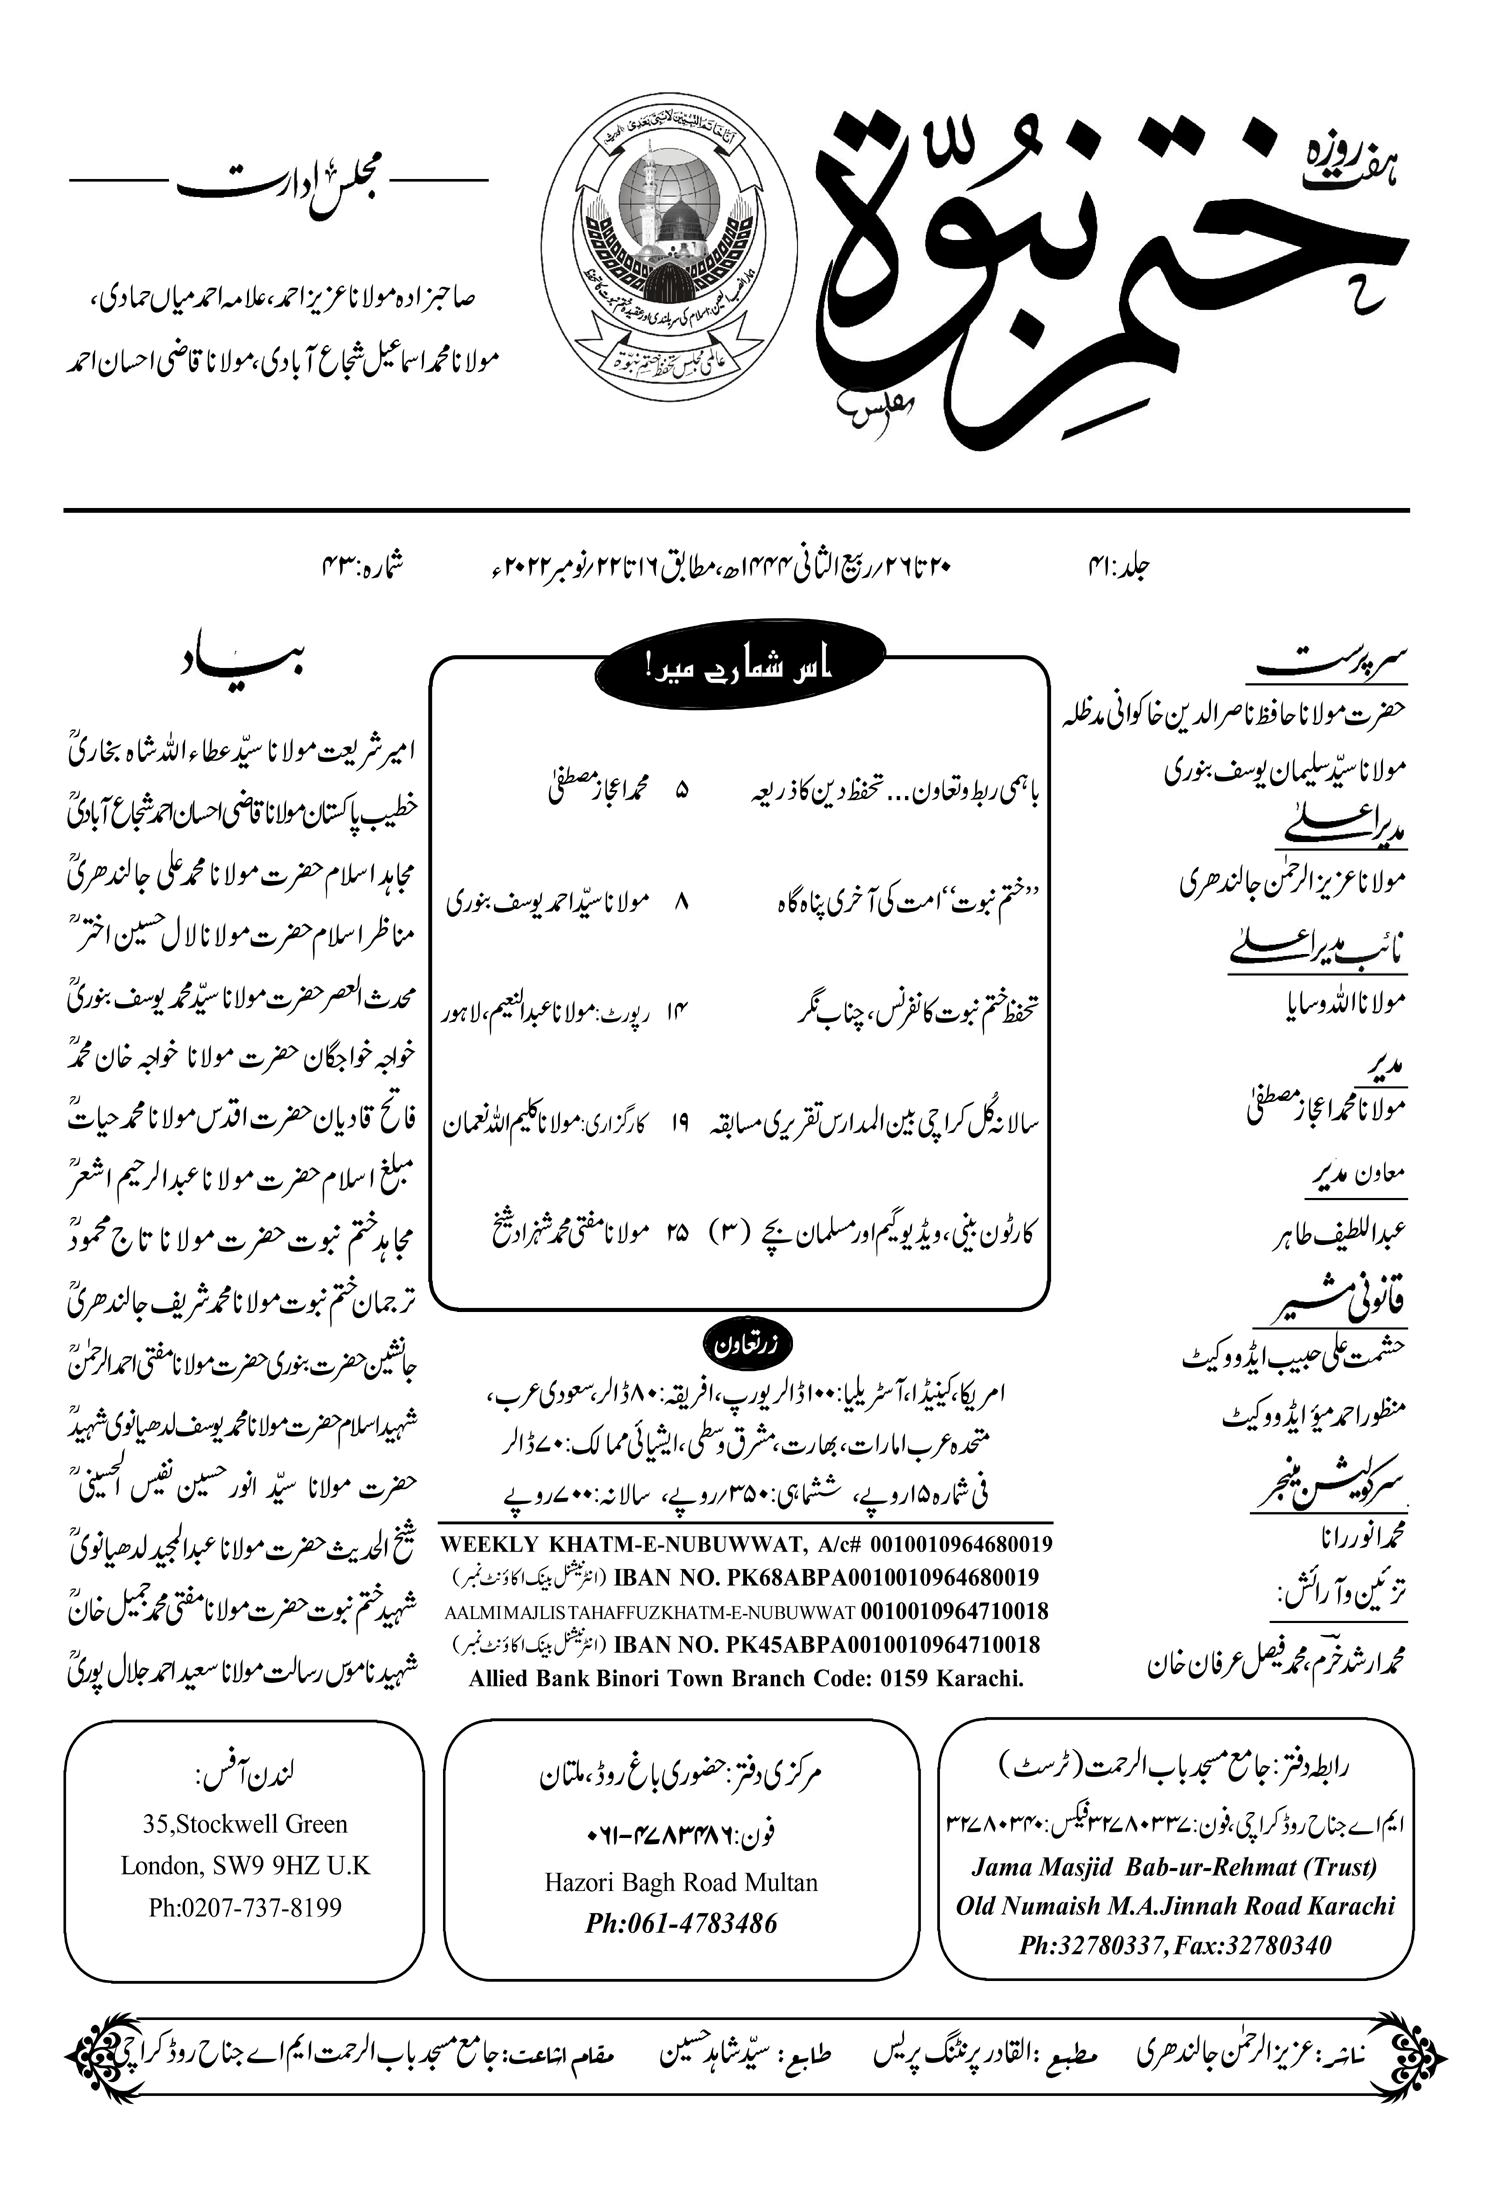 ہفت روزہ
ختم نبوۃ
انا خاتم النبیین لا نبی بعدی
ہمارا نصب العین: اسلام کی سربلندی اور عقیدہ ختم نبوت کا تحفظ
عالمی مجلس تحفظ ختم نبوۃ
مجلس ادارت
صاحبزادہ مولانا عزیز احمد، علامہ احمد میاں حمادی،
مولانا محمد اسماعیل شجاع آبادی، مولانا قاضی احسان احمد
جلد: ۴۱
۲۰ تا ۲۶/ ربیع الثانی ۱۴۴۴ھ، مطابق ۱۶ تا ۲۲/ نومبر ۲۰۲۲ء
شمارہ: ۴۳
سرپرست
حضرت مولانا حافظ ناصر الدین خاکوانی مدظلہ
مولانا سیّد سلیمان یوسف بنوری
مدیر اعلیٰ
مولانا عزیز الرحمٰن جالندھری
نائب مدیر اعلیٰ
مولانا اللہ وسایا
مدیر
مولانا محمد اعجاز مصطفیٰ
معاون مدیر
عبداللطیف طاہر
قانونی مشیر
حشمت علی حبیب ایڈووکیٹ
منظور احمد میؤ ایڈووکیٹ
سرکولیشن منیجر
محمد انور رانا
تزئین و آرائش:
محمد ارشد خرم، محمد فیصل عرفان خان
اس شمارے میں!
باہمی ربط و تعاون... تحفظ دین کا ذریعہ ۵ محمد اعجاز مصطفیٰ
”ختم نبوت“ امت کی آخری پناہ گاہ ۸ مولانا سیّد احمد یوسف بنوری
تحفظ ختم نبوت کانفرنس، چناب نگر ۱۴ رپورٹ: مولانا عبدالنعیم، لاہور
سالانہ کُل کراچی بین المدارس تقریری مسابقہ ۱۹ کارگزاری: مولانا کلیم اللہ نعمان
کارٹون بینی، ویڈیو گیم اور مسلمان بچے (۳) ۲۵ مولانا مفتی محمد شہزاد شیخ
زرتعاون
امریکا، کینیڈا، آسٹریلیا: ۱۰۰ ڈالر یورپ، افریقہ: ۸۰ ڈالر، سعودی عرب،
متحدہ عرب امارات، بھارت، مشرق وسطی، ایشیائی ممالک: ۷۰ ڈالر
فی شمارہ ۱۵ روپے، ششماہی: ۳۵۰/ روپے، سالانہ: ۷۰۰ روپے
WEEKLY KHATM-E-NUBUWWAT, A/c# 0010010964680019
IBAN NO. PK68ABPA0010010964680019 (انٹرنیشنل بینک اکاؤنٹ نمبر)
AALMI MAJLIS TAHAFFUZ KHATM-E-NUBUWWAT 0010010964710018
IBAN NO. PK45ABPA0010010964710018 (انٹرنیشنل بینک اکاؤنٹ نمبر)
Allied Bank Binori Town Branch Code: 0159 Karachi.
بیاد
امیر شریعت مولانا سیّد عطاء اللہ شاہ بخاریؒ
خطیب پاکستان مولانا قاضی احسان احمد شجاع آبادیؒ
مجاہد اسلام حضرت مولانا محمد علی جالندھریؒ
مناظر اسلام حضرت مولانا لال حسین اخترؒ
محدث العصر حضرت مولانا سیّد محمد یوسف بنوریؒ
خواجہ خواجگان حضرت مولانا خواجہ خان محمدؒ
فاتح قادیان حضرت اقدس مولانا محمد حیاتؒ
مبلغ اسلام حضرت مولانا عبدالرحیم اشعرؒ
مجاہد ختم نبوت حضرت مولانا تاج محمودؒ
ترجمان ختم نبوت مولانا محمد شریف جالندھریؒ
جانشین حضرت بنوری حضرت مولانا مفتی احمد الرحمٰنؒ
شہید اسلام حضرت مولانا محمد یوسف لدھیانوی شہیدؒ
حضرت مولانا سیّد انور حسین نفیس الحسینیؒ
شیخ الحدیث حضرت مولانا عبدالمجید لدھیانویؒ
شہید ختم نبوت حضرت مولانا مفتی محمد جمیل خانؒ
شہید ناموس رسالت مولانا سعید احمد جلال پوریؒ
رابطہ دفتر: جامع مسجد باب الرحمت (ٹرسٹ)
ایم اے جناح روڈ کراچی، فون: ۳۲۷۸۰۳۳۷ فیکس: ۳۲۷۸۰۳۴۰
Jama Masjid Bab-ur-Rehmat (Trust)
Old Numaish M.A.Jinnah Road Karachi
Ph:32780337, Fax:32780340
مرکزی دفتر: حضوری باغ روڈ، ملتان
فون: ۰۶۱-۴۷۸۳۴۸۶
Hazori Bagh Road Multan
Ph:061-4783486
لندن آفس:
35,Stockwell Green
London, SW9 9HZ U.K
Ph:0207-737-8199
ناشر: عزیز الرحمٰن جالندھری مطبع: القادر پرنٹنگ پریس طابع: سیّد شاہد حسین مقام اشاعت: جامع مسجد باب الرحمت ایم اے جناح روڈ کراچی